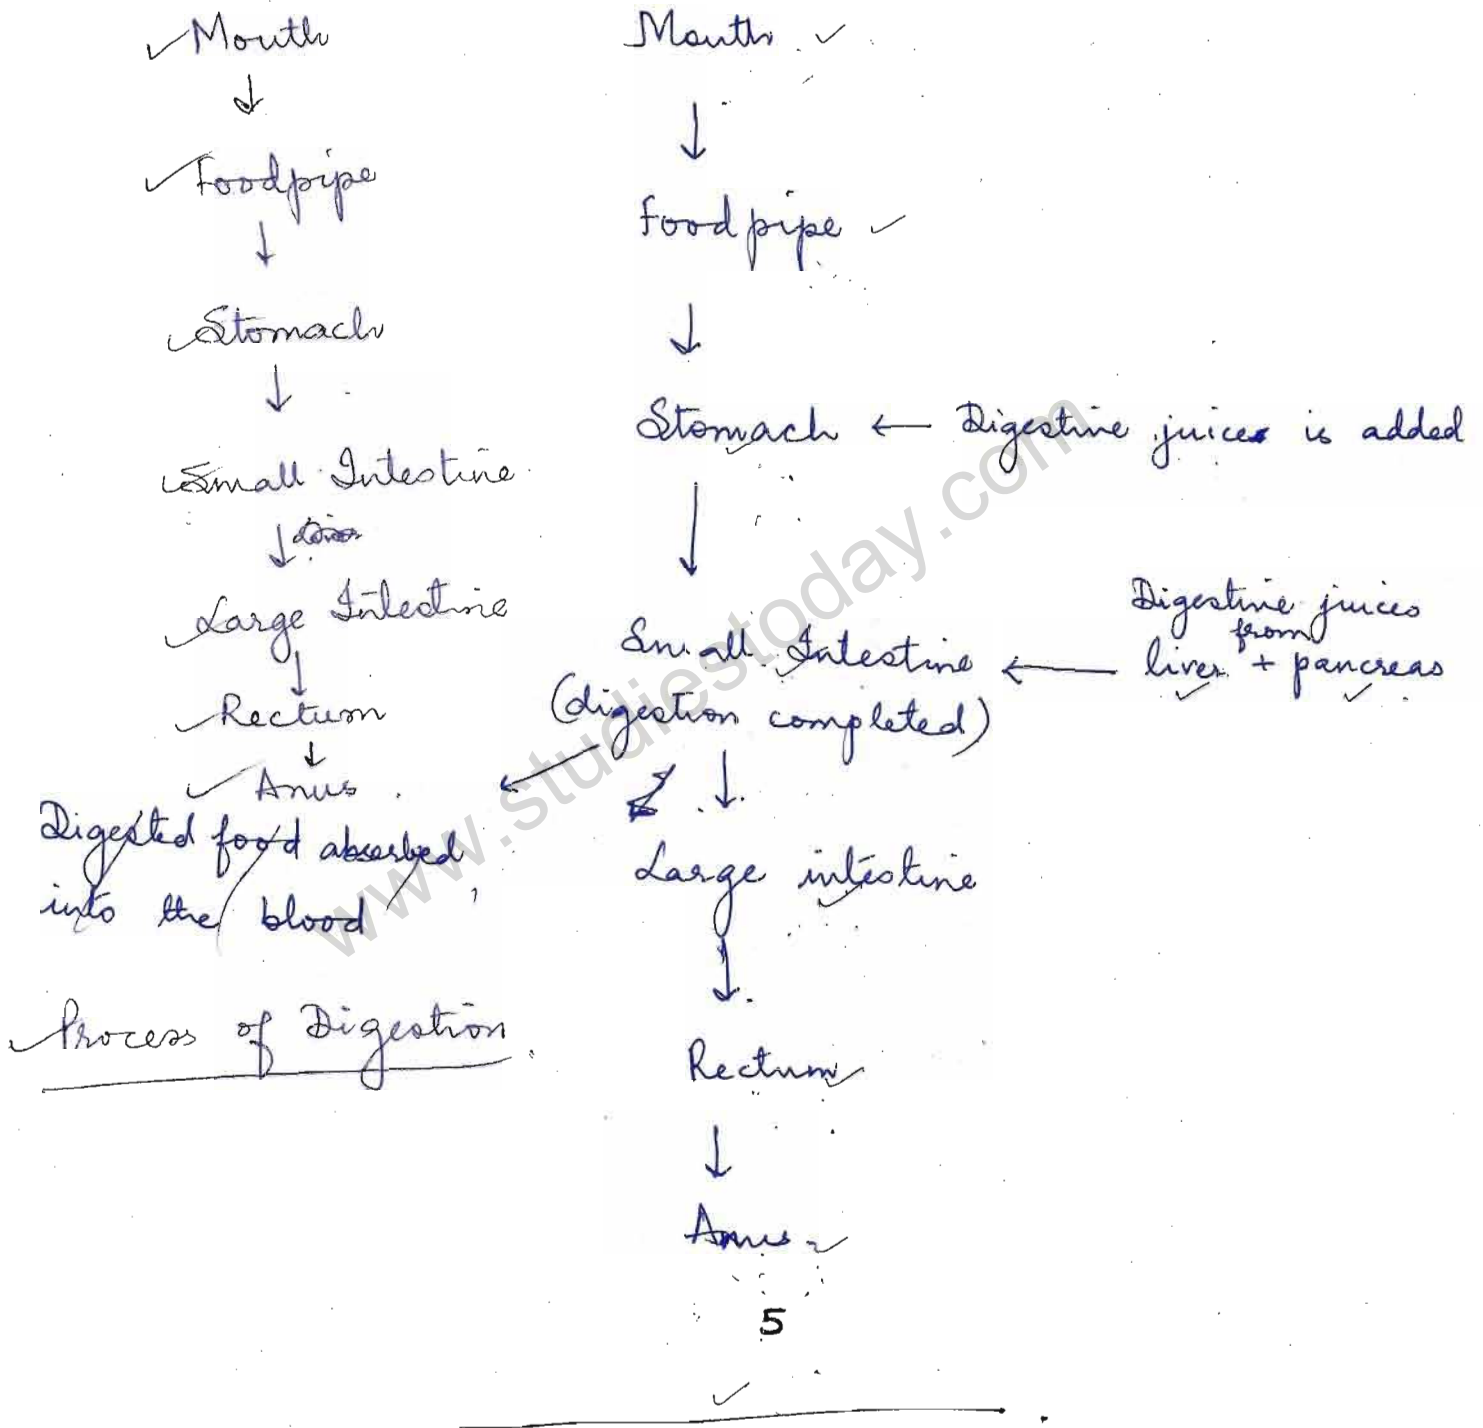 Mouth
↓
Foodpipe
↓
Stomach
↓
Small Intestine
↓
Large Intestine
↓
Rectum
↓
Anus.
Digested food absorbed
into the blood
Process of Digestion.
Mouth.
↓
Foodpipe
↓
Stomach ← Digestive juices is added
↓
Small Intestine ← Digestive juices
from
liver + pancreas
(digestion completed)
↓
Large intestine
↓
Rectum
↓
Anus
5
www.studiestoday.com